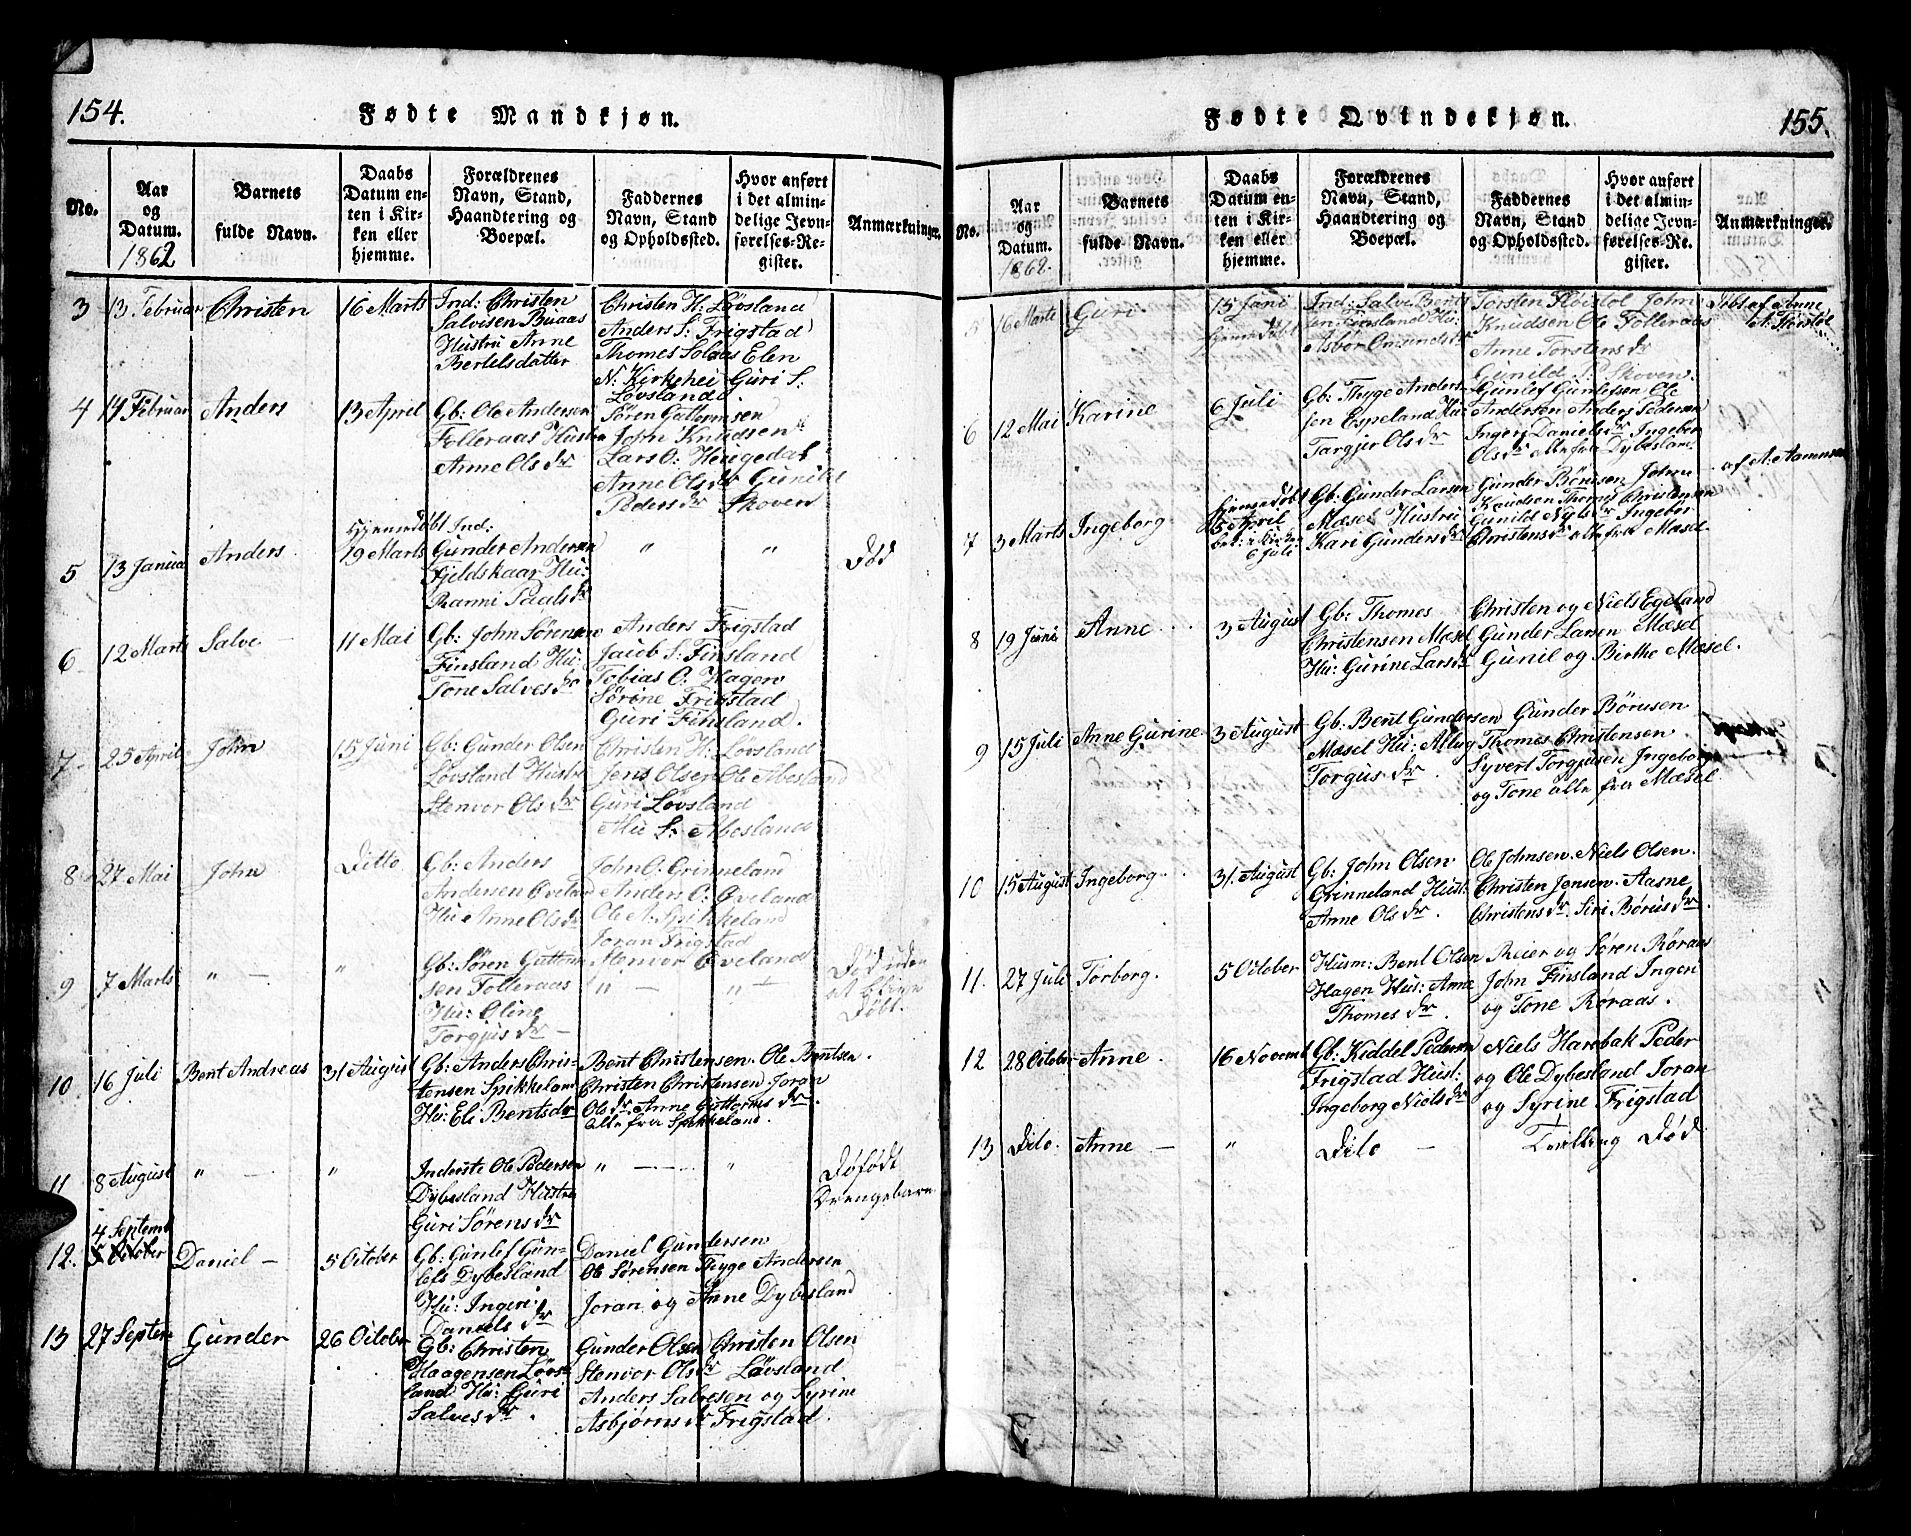 154.
Fødte Mandkjøn.
No.
Aar og Datum. 1862
Barnets fulde Navn.
Daabs Datum enten i Kirken eller hjemme.
Forældrenes Navn, Stand, Haandtering og Boepæl.
Faddernes Navn, Stand og Opholdssted.
Hvor anført i det almindelige Jevnførelses-Register.
Anmærkninger.
3 13 Februar Christen 16 Marts
Ind: Christen
Salvisen Buaas
Hustru Anne
Bertelsdatter
Christen H: Løvsland
Anders S: Frigstad
Thomes Solaas Elen
N: Kirkehei Guri S:
Løvsland
4 14 Februar Anders 13 April
Gb: Ole Andersen
Folleraas Hustru
Anne Olsdr
Søren Guttormsen
John Knudsen
Lars O: Heigedal
Anne Olsdr Gunild
Pedersdr Skoven
5 13 Januar Anders
Hjemmedøbt
19 Marts
Ind:
Gunder Andersen
Fjeldskaar Hu:
Ranni Paalsdr
" "
Død
6 12 Marts Salve 11 Mai
Gb: John Sørensen
Finsland Hu:
Tone Salvesdr
Anders Frigstad
Jacob S: Finsland
Tobias O: Hagen
Sørine Frigstad
Guri Finsland.
7 25 April John 15 Juni
Gb: Gunder Olsen
Løvsland Hustru
Stenvor Olsdr
Christen H: Løvsland
Jens Olsen Ole Abesland
Guri Løvsland
S: Abesland
8 27 Mai John Ditto
Gb: Anders
Andersen Øveland
Hu Anne Olsdr
John O: Grinneland
Anders O: Øveland
Ole A: Spikkeland
Joran Frigstad
Stenvor Øveland
9 7 Marts " — "
Gb: Søren Guttorm
sen Folleraas
Hu: Oline
Torgjusdr —
" — " —
Død uden
at blive
Døbt.
10 16 Juli Bent Andreas 31 August
Gb: Anders Chris-
tensen Spikkeland
Hu: Eli Bentsdr
Bent Christensen. Ole Bentsen.
Christen Christensen Joran
Olsdr Anne Guttormsdr.
alle fra Spikkeland.
11 8 August " — "
Inderste Ole Pedersen
Dybesland Hustru
Guri Sørensdr
" — "
Døfødt
Drengebarn
12. 4 Septemb
5 October
Daniel — 5 October
Gb: Gunlef Gun-
lefs Dybesland
Hu: Ingeri
Danielsdr
Daniel Gundersen
Ole Sørensen Thyge Andersen
Joran og Anne Dybesland
13 27 Septem Gunder 26 October
Gb: Christen
Haagensen Løvs-
land Hu: Guri
Salvesdr.
Gunder Olsen Christen Olsen
Stenvor Olsdr Løvsland
Anders Salvesen og Syrine
Asbjørnsdr Frigstad.
155.
Fødte Qvindekjøn.
No.
Aar og Datum. 1862.
Barnets fulde Navn.
Daabs Datum enten i Kirken eller hjemme.
Forældrenes Navn, Stand, Haandtering og Boepæl.
Faddernes Navn, Stand og Opholdssted.
Hvor anført i det almindelige Jevnførelses-Register.
Anmærkninger.
5 16 Marts Guri 15 Juni
Hjemmedøbt
Ind: Salve Bent
sen Finsland Hu:
Asbor Omundsdr
Torsten Høistøl John
Knudsen Ole Folleraas
Anne Torstensdr
Gunild P: Skoven.
Døbt af Anne
A. Høistøl
6 12 Mai Karine 6 Juli
Gb: Thyge Anders
sen Espeland Hu:
Targjer Olsdr
Gunlef Gunlefsen Ole
Andersen Anders Pedersen
Ingeri Danielsdr Ingebor
Olsdr alle fra Dybesland
7 3 Marts Ingeborg
Hjemmedøbt
5 April
6 Juli
Gb: Gunder Larsen
Mæsel Hustru
Kari Gundersdr
Gunder Børusen John
Knudsen Thomes Christensen
Gunild Nilsdr Ingebor
Christensdr alle fra Mæsel
af A. Aamunsen
8 19 Juni Anne 3 August
Gb: Thomes
Christensen Mæsel
Hu: Gurine Larsdr
Christen og Niels Egeland
Gunder Larsen Mæsel
Gunil og Birthe Mæsel.
9 15 Juli Anne Gurine 3 August
Gb: Bent Gundersen
Mæsel Hu: Allug
Torgusdr.
Gunder Børusen
Thomes Christensen
Syvert Torgjusen Ingeborg
og Tone alle fra Mæsel
10 15 August Ingeborg 31. August
Gb: John Olsen
Grinneland Hust:
Anne Olsdr.
Ole Johnsen. Niels Olsen.
Christen Jensen. Aasne
Christensdr. Siri Børusdr.
11. 27 Juli Torborg. 5 October
Husm: Bent Olsen
Hagen Hus: Anne
Thomesdr.
Reier og Søren Røraas
John Finsland Inger
og Tone Røraas.
12 28 October Anne. 16 Novemb
Gb: Kiddel Pedersen
Frigstad Hust:
Ingeborg Nielsdr
Niels Harebak Peder
og Ole Dybesland Joran
og Syrine Frigstad
13 Dito. Anne — " Dito — Tvilling Død